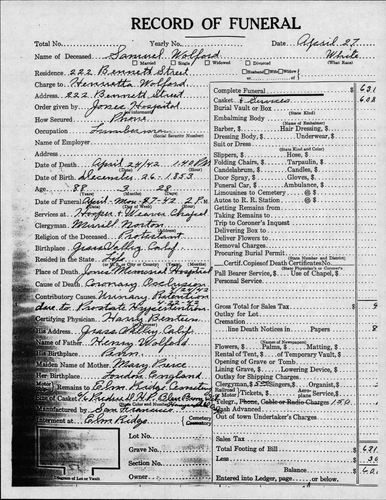 RECORD OF FUNERAL
Total No. Yearly No. Date April 27
Name of Deceased Samuel Wolford White
Married Single Widowed Divorced (What Race)
Residence 222 Bennett Street Husband Wife Widow
Charge to Henrietta Wolford
Address 222 Bennett Street
Order given by Jones Hospital
(or Informant)
How Secured Phone
Occupation Lumberman
(Social Security Number)
Name of Employer
Address
Date of Death April 24/42 1:40 PM
Date of Birth December 26-1853
Age 88 3 28
Date of Funeral April-Mon-27-42 2 P.M.
Services at Hooper & Weaver Chapel
Clergyman Murrell Norton
Religion of the Deceased Protestant
Birthplace Grass Valley Calif.
Resided in the State Life
Place of Death Jones Memorial Hospital
Cause of Death Coronary Occlusion
Contributory Causes Urinary Retention
due to Prostate Hypertention
Certifying Physician Harry
His Address Grass Valley Calif.
Name of Father Henry Wolford
His Birthplace Penn.
Maiden Name of Mother Mary Pierce
Her Birthplace London England
Remains to Elm Ridge Cemetery
Size and
Manufactured by San Francisco
Interment at Elm Ridge Cemetery
Lot No.
Grave No.
Section No.
Owner
Diagram of Lot or Vault
Complete Funeral $ 631
Casket & Services 608
Burial Vault or Box
(State Kind)
(Name of Manufacturer)
Barber, $ Hair Dressing, $
Dressing Body, $ Underwear, $
Suit or Dress
(State Kind)
Slippers, $ Hose, $
Folding Chairs, $ Tarpaulin, $
Candelabrum, $ Candles, $
Door Spray, $ Gloves, $
Funeral Car, $ Ambulance, $
Limousines to Cemetery @ $
Autos to R. R. Station @ $
Getting Remains from
Taking Remains to
Trip to Coroner's Inquest
Delivering Box to
Deliver Flowers to
Removal Charges
Procuring Burial Permit
(State Number and District)
Certif. Copies of Death Certificate No.
(State Physician's or Coroner's)
Pall Bearer Service, $ Use of Chapel, $
Personal Service
Gross Total for Sales Tax $
Outlay for Lot
Cremation
line Death Notices in Papers 8
(Names of Newspapers)
Flowers, $ Palms, $ Matting, $
Rental of Tent, $ of Temporary Vault, $
Opening of Grave or Tomb
Lining Grave, $ Lowering Device, $
Outlay for Shipping Charges
Clergyman, $ Singers, $ Organist, $
Tickets, $ Service, $
Telegr., Phone, Cable or Radio Charges
Cash Advanced
Out of town Undertaker's Charges
Sales Tax
Total Footing of Bill $ 631
Less
Balance
Entered into Ledger, page or below.